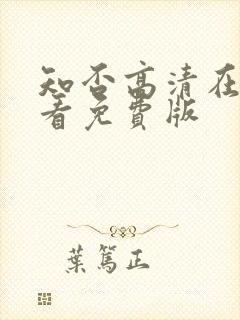 知否高清在
看免费版
葉篤正